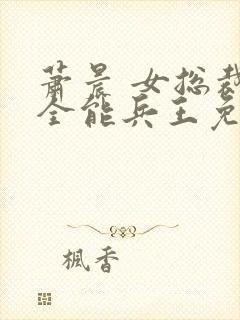 萧晨 女总裁
全能兵王免
枫香